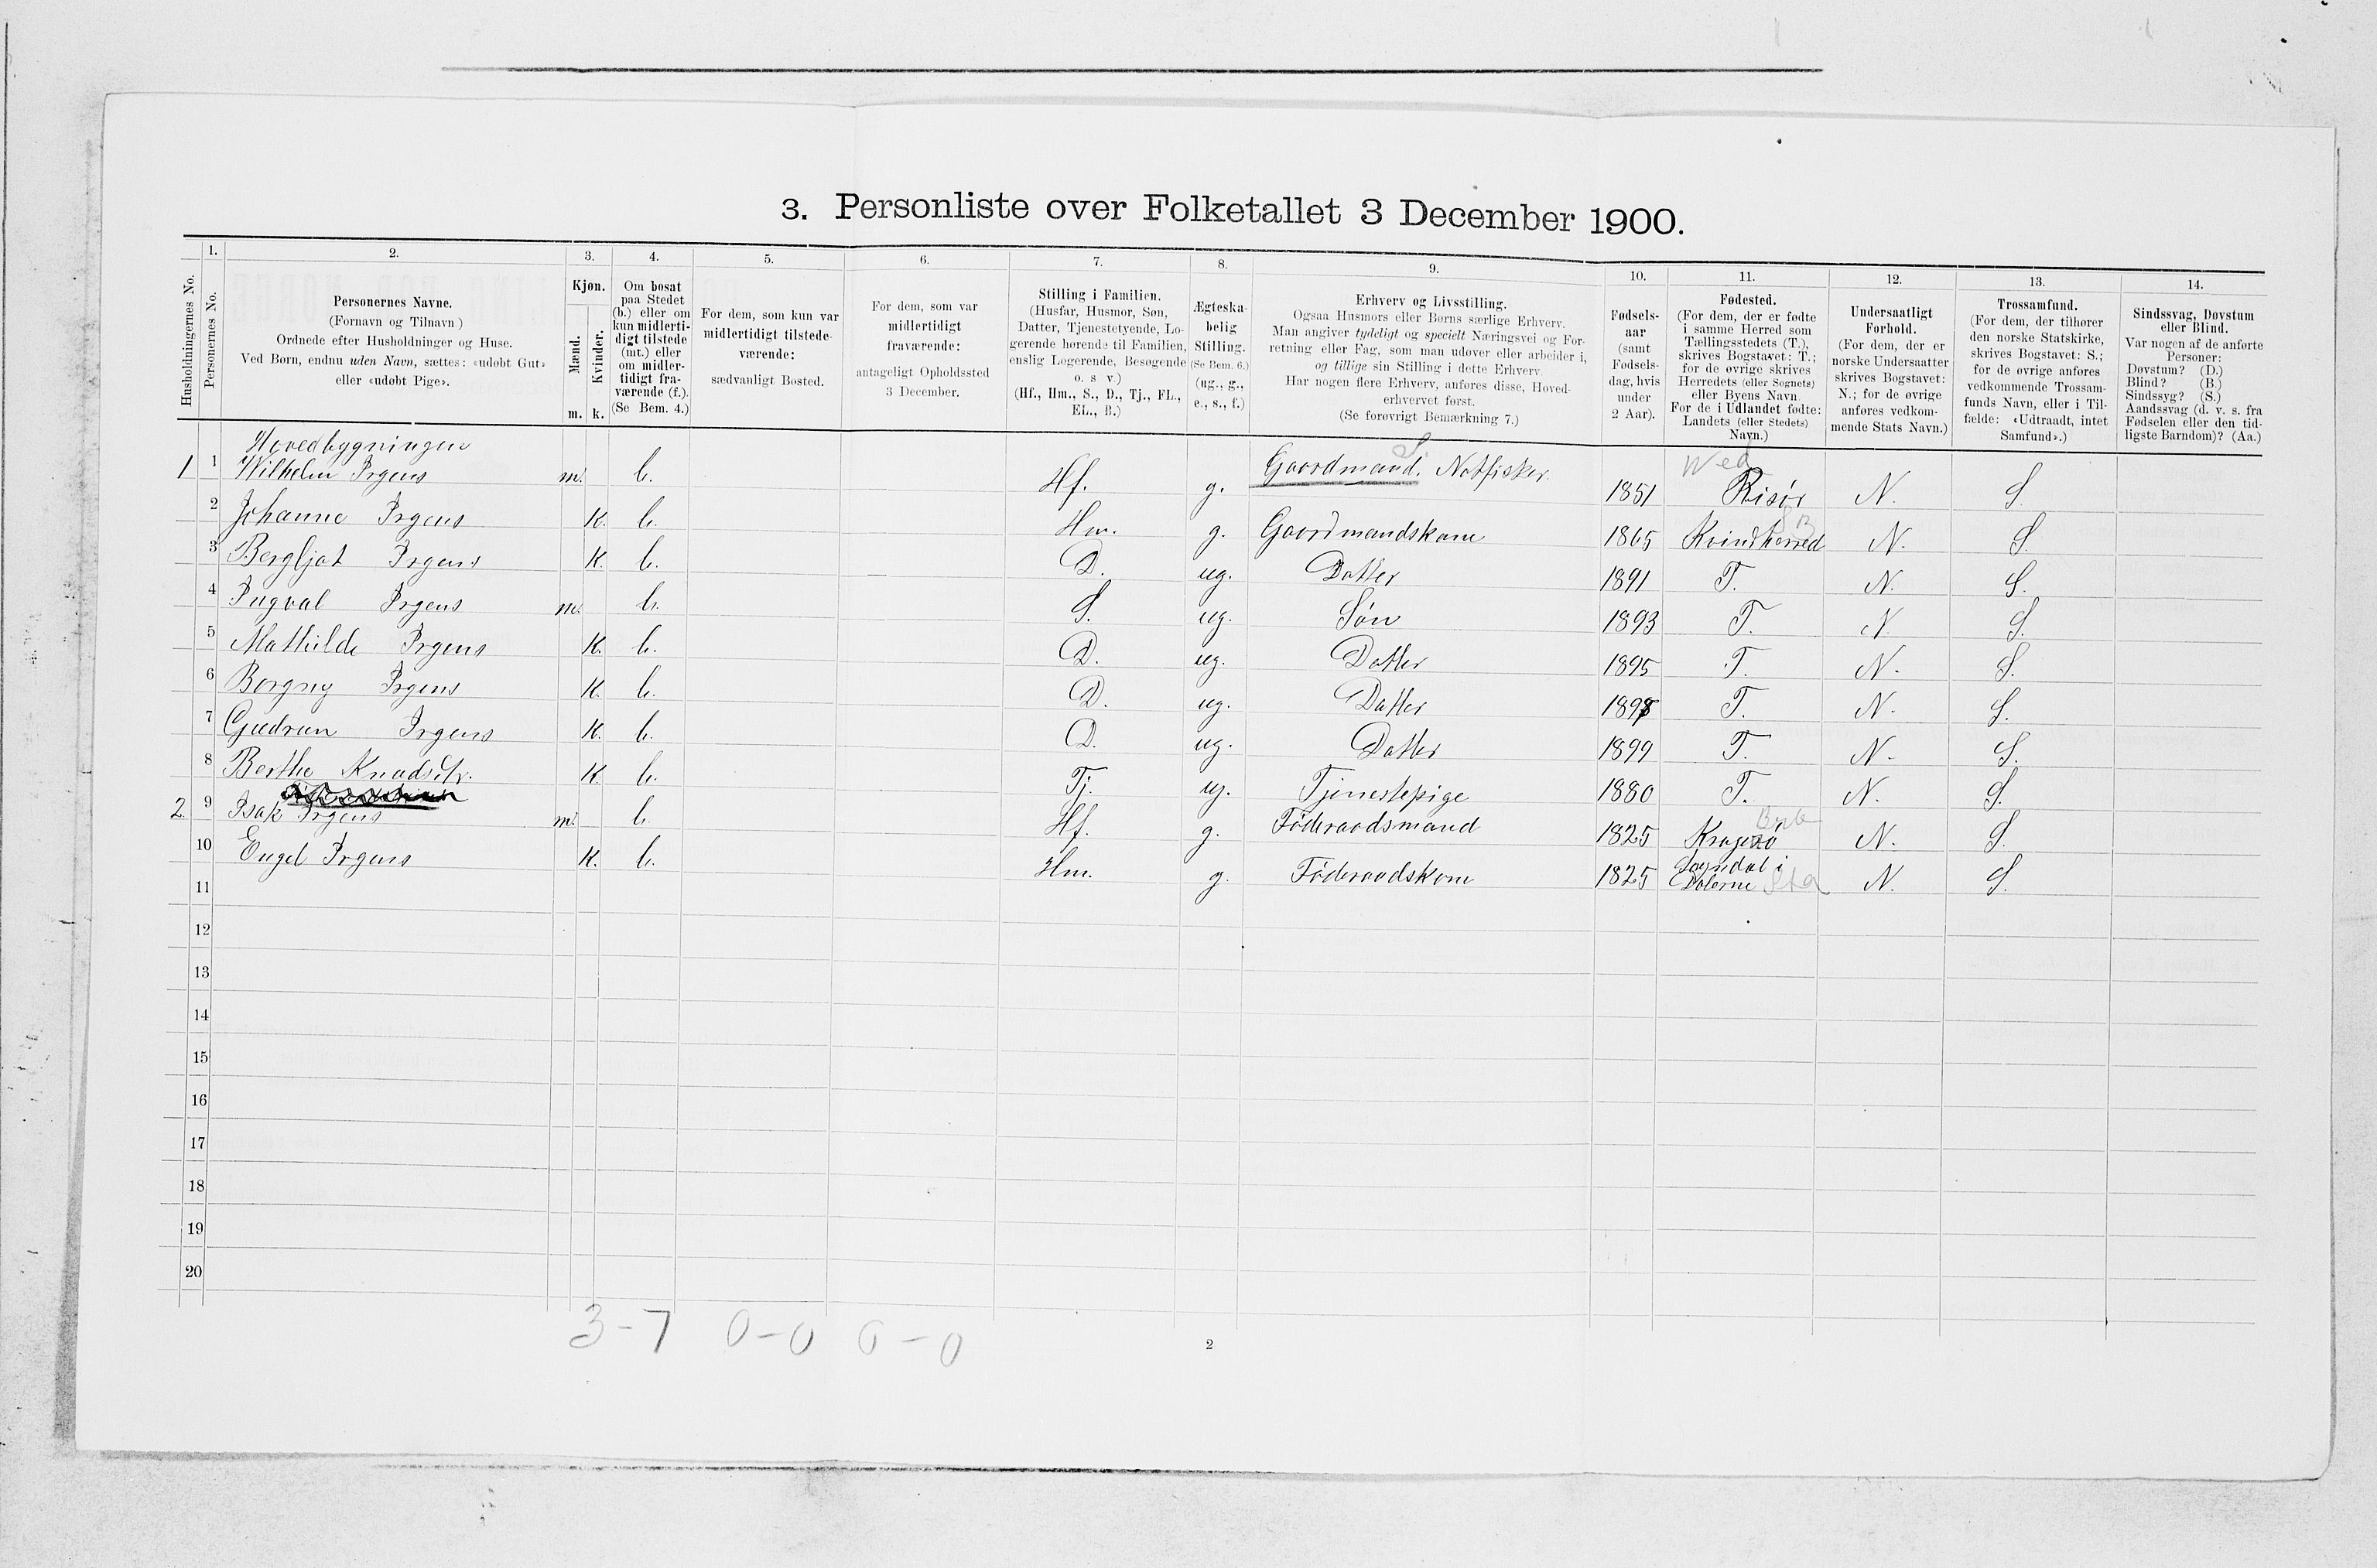 3. Personliste over Folketallet 3 December 1900.
1. 2. 3. 4. 5. 6. 7. 8. 9. 10. 11. 12. 13. 14.
Husholdningernes No.
Personernes No.
Personernes Navne.
(Fornavn og Tilnavn)
Ordnede efter Husholdninger og Huse.
Ved Børn, endnu uden Navn, sættes: «udøbt Gut»
eller «udøbt Pige».
Kjøn.
Mænd.
Kvinder.
m. k.
Om bosat
paa Stedet
(b.) eller om
kun midlerti-
digt tilstede
(mt.) eller
om midler-
tidigt fra-
værende (f.).
(Se Bem. 4.)
For dem, som kun var
midlertidigt tilstede-
værende:
sædvanligt Bosted.
For dem, som var
midlertidigt
fraværende:
antageligt Opholdssted
3 December.
Stilling i Familien.
(Husfar, Husmor, Søn,
Datter, Tjenestetyende, Lo-
gerende hørende til Familien,
enslig Logerende, Besøgende
o. s v.)
(Hf., Hm., S., D., Tj., FL.,
EL., B.)
Ægteska-
belig
Stilling.
(Se Bem. 6.)
(ug., g.,
e., s., f.)
Erhverv og Livsstilling.
Ogsaa Husmors eller Børns særlige Erhverv.
Man angiver tydeligt og specielt Næringsvei og For-
retning eller Fag, som man udøver eller arbeider i,
og tillige sin Stilling i dette Erhverv.
Har nogen flere Erhverv, anføres disse, Hoved-
erhvervet først.
(Se forøvrigt Bemærkning 7.)
Fødsels-
aar
(samt
Fødsels-
dag, hvis
under
2 Aar).
Fødested.
(For dem, der er fødte
i samme Herred som
Tællingsstedets (T.),
skrives Bogstavet: T.;
for de øvrige skrives
Herredets (eller Sognets)
eller Byens Navn.
For de i Udlandet fødte:
Landets (eller Stedets)
Navn.)
Undersaatligt
Forhold.
(For dem, der er
norske Undersaatter
skrives Bogstavet:
N.; for de øvrige
anføres vedkom-
mende Stats Navn.)
Trossamfund.
(For dem, der tilhører
den norske Statskirke,
skrives Bogstavet: S.;
for de øvrige anføres
vedkommende Trossam-
funds Navn, eller i Til-
fælde: «Udtraadt, intet
Samfund».)
Sindssvag, Døvstum
eller Blind.
Var nogen af de anførte
Personer:
Døvstum? (D.)
Blind? (B.)
Sindssyg? (S.)
Aandssvag (d. v. s. fra
Fødselen eller den tid-
ligste Barndom)? (Aa.)
Hovedbygningen
1 1 Wilhelm Irgens m. b. Hf. g. Gaardmand. Notfisker 1851 Risør N. S.
2 Johanne Irgens K. b. Hm. g. Gaardmandskone 1865 Kvindherred N. S.
3 Bergljot Irgens K. b. D. ug. Datter 1891 T. N. S.
4 Ingval Irgens m. b. S. ug. Søn 1893 T. N S.
5 Mathilde Irgens K. b. D. ug. Datter 1895 T. N. S.
6 Borgny Irgens K. b. D. ug. Datter 1898 T. N. S.
7 Gudrun Irgens K. b. D. ug. Datter 1899 T. N. S.
8 Berthe Knudsdtr. K. b. Tj. ug. Tjenestepige 1880 T. N. S.
2 9 Isak Irgens m. b. Hf. g. Föderaadsmand 1825 Kragerö N. S.
10 Engel Irgens K. b. Hm. g. Föderaadskone 1825 Sogndal i Dalerne N. S.
11
12
13
14
15
16
17
18
19
20
3-7 0-0 0-0
2